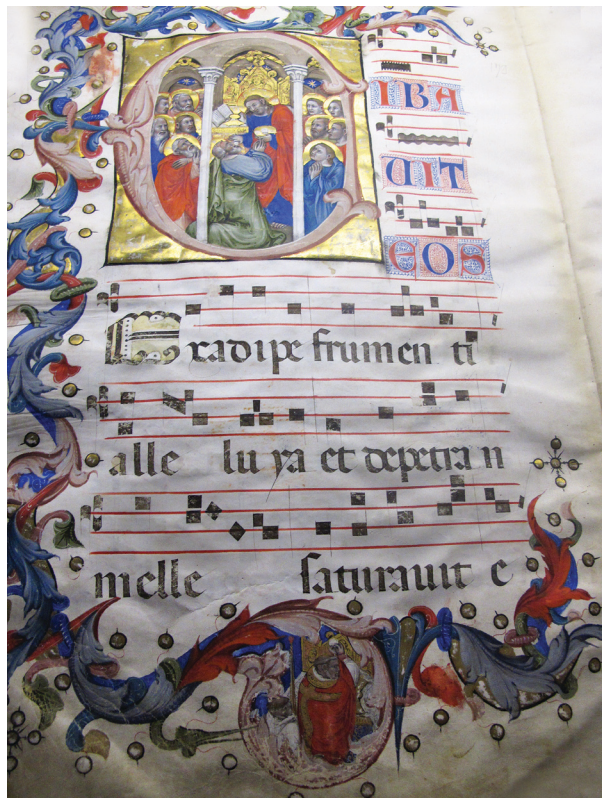 CIBA
UIT
EOS
Exadipe frumen ti
alle lu ya et depetra n
melle saturauit e